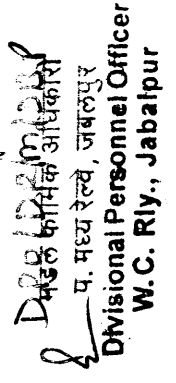 मंडल कार्मिक अधिकारी
प. मध्य रेल्वे, जबलपुर
Divisional Personnel Officer
W. C. Rly., Jabalpur